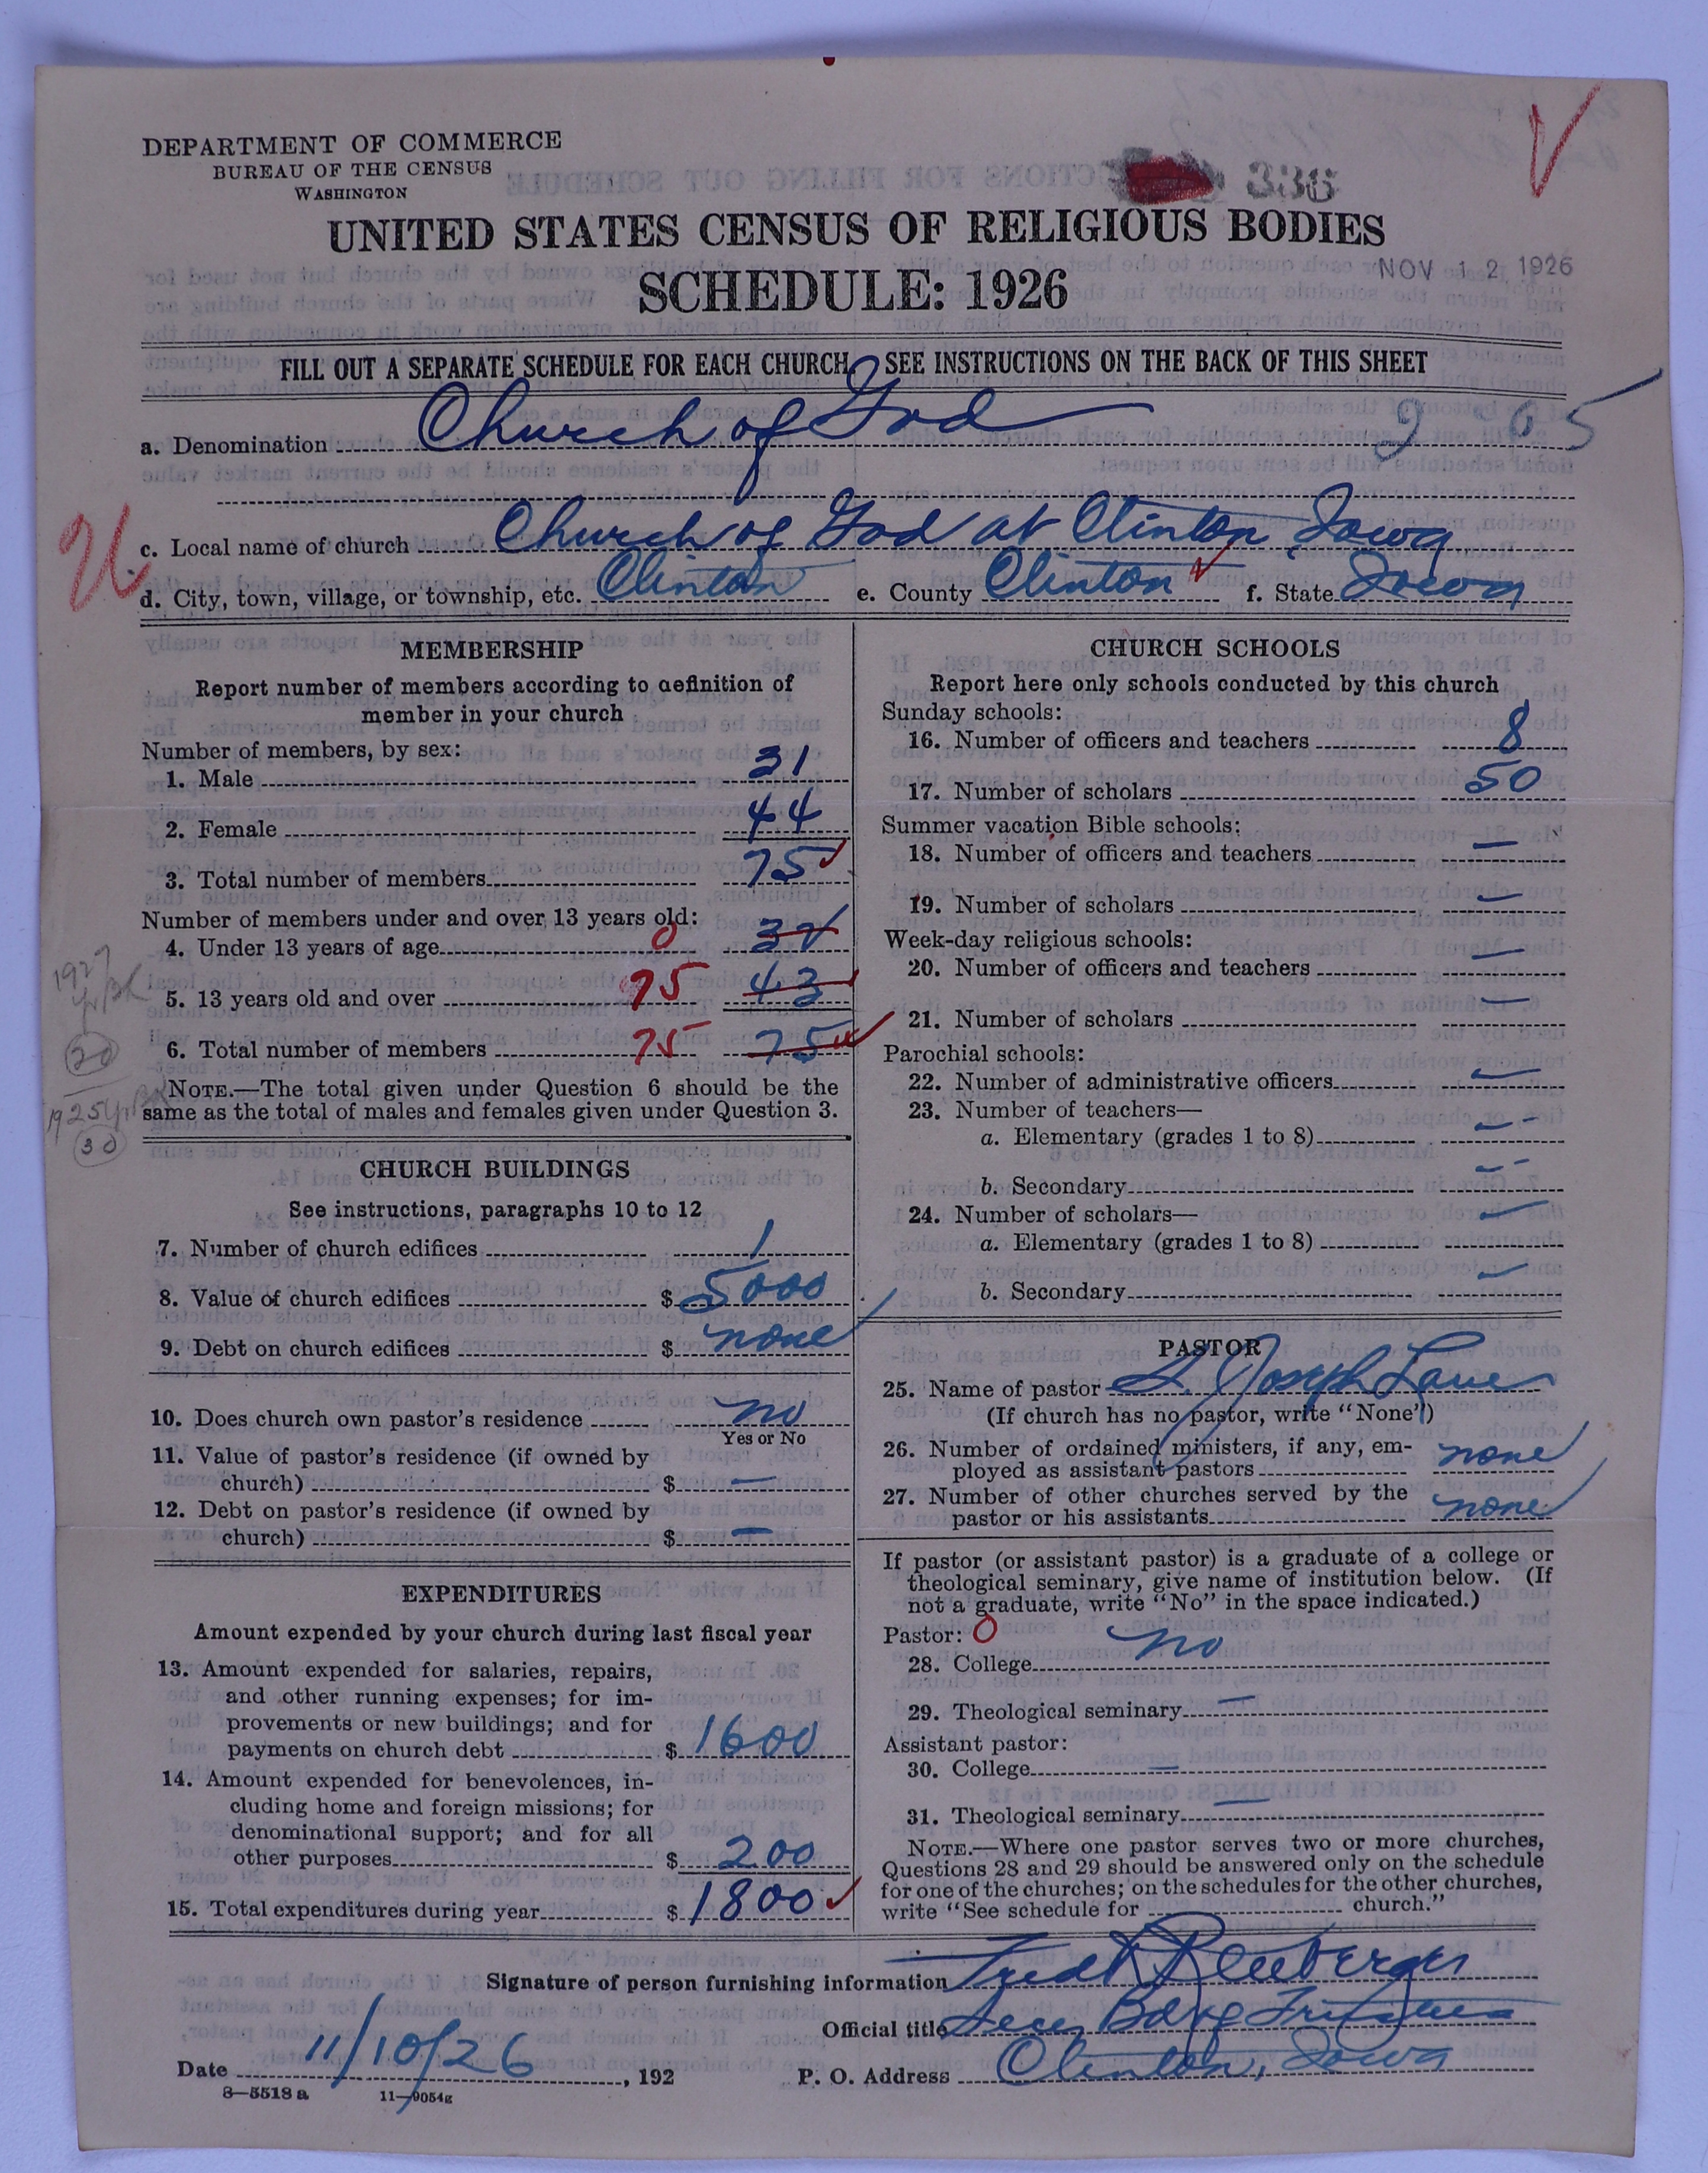 DEPARTMENT OF COMMERCE
BUREAU OF THE CENSUS
WASHINGTON
336
UNITED STATES CENSUS OF RELIGIOUS BODIES
SCHEDULE: 1926
NOV 12 1926
FILL OUT A SEPARATE SCHEDULE FOR EACH CHURCH. SEE INSTRUCTIONS ON THE BACK OF THIS SHEET
a. Denomination Church of God 9 05
c. Local name of church Church of God at Clinton, Iowa
d. City, town, village, or township, etc. Clinton e. County Clinton f. State Iowa
MEMBERSHIP
Report number of members according to definition of
member in your church
Number of members, by sex:
1. Male 31
2. Female 44
3. Total number of members 75
Number of members under and over 13 years old:
4. Under 13 years of age 0 32
5. 13 years old and over 75 43
6. Total number of members 75 75
1927
30
1925
30
NOTE.—The total given under Question 6 should be the
same as the total of males and females given under Question 3.
CHURCH BUILDINGS
See instructions, paragraphs 10 to 12
7. Number of church edifices 1
8. Value of church edifices $ 5000
9. Debt on church edifices $ none
10. Does church own pastor's residence no
Yes or No
11. Value of pastor's residence (if owned by
church) $ —
12. Debt on pastor's residence (if owned by
church) $ —
EXPENDITURES
Amount expended by your church during last fiscal year
13. Amount expended for salaries, repairs,
and other running expenses; for im-
provements or new buildings; and for
payments on church debt $ 1600
14. Amount expended for benevolences, in-
cluding home and foreign missions; for
denominational support; and for all
other purposes $ 200
15. Total expenditures during year $ 1800
CHURCH SCHOOLS
Report here only schools conducted by this church
Sunday schools:
16. Number of officers and teachers 8
17. Number of scholars 50
Summer vacation Bible schools:
18. Number of officers and teachers —
19. Number of scholars —
Week-day religious schools:
20. Number of officers and teachers —
21. Number of scholars —
Parochial schools:
22. Number of administrative officers —
23. Number of teachers—
a. Elementary (grades 1 to 8) —
b. Secondary —
24. Number of scholars—
a. Elementary (grades 1 to 8) —
b. Secondary —
PASTOR
25. Name of pastor Joseph Lane
(If church has no pastor, write "None")
26. Number of ordained ministers, if any, em-
ployed as assistant pastors none
27. Number of other churches served by the
pastor or his assistants none
If pastor (or assistant pastor) is a graduate of a college or
theological seminary, give name of institution below. (If
not a graduate, write "No" in the space indicated.)
Pastor: 0
28. College no
29. Theological seminary —
Assistant pastor:
30. College —
31. Theological seminary —
NOTE.—Where one pastor serves two or more churches,
Questions 28 and 29 should be answered only on the schedule
for one of the churches; on the schedules for the other churches,
write "See schedule for church."
Signature of person furnishing information Fred
Official title Secy
Date 11/10/26, 192 P. O. Address Clinton, Iowa
8—5518 a 11—9054g